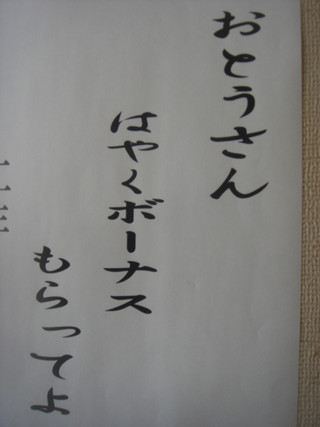 おとうさん
はやくボーナス
もらってよ